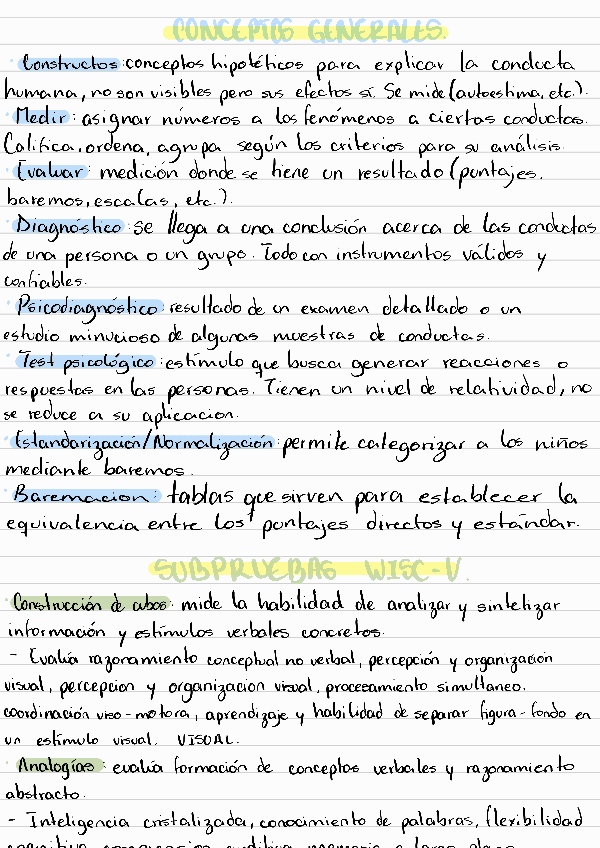 CONCEPTOS GENERALES.
· Constructos: conceptos hipotéticos para explicar la conducta
humana, no son visibles pero sus efectos sí. Se mide (autoestima, etc.).
· Medir: asignar números a los fenómenos a ciertas conductas.
Califica, ordena, agrupa según los criterios para su análisis.
· Evaluar: medición donde se tiene un resultado (puntajes,
baremos, escalas, etc.).
· Diagnóstico: se llega a una conclusión acerca de las conductas
de una persona o un grupo. Todo con instrumentos válidos y
confiables.
· Psicodiagnóstico: resultado de un examen detallado o un
estudio minucioso de algunas muestras de conductas.
· Test psicológico: estímulo que busca generar reacciones o
respuestas en las personas. Tienen un nivel de relatividad, no
se reduce a su aplicacion.
· Estandarización/Normalización: permite categorizar a los niños
mediante baremos.
· Baremacion: tablas que sirven para establecer la
equivalencia entre los puntajes directos y estándar.
SUBPRUEBAS WISC-V.
· Construcción de cubos: mide la habilidad de analizar y sintetizar
información y estímulos verbales concretos.
- Evalúa razonamiento conceptual no verbal, percepción y organización
visual, percepcion y organizacion visual, procesamiento simultaneo,
coordinación viso-motora, aprendizaje y habilidad de separar figura-fondo en
un estimulo visual. VISUAL.
· Analogías: evalúa formación de conceptos verbales y razonamiento
abstracto.
- Inteligencia cristalizada, conocimiento de palabras, flexibilidad